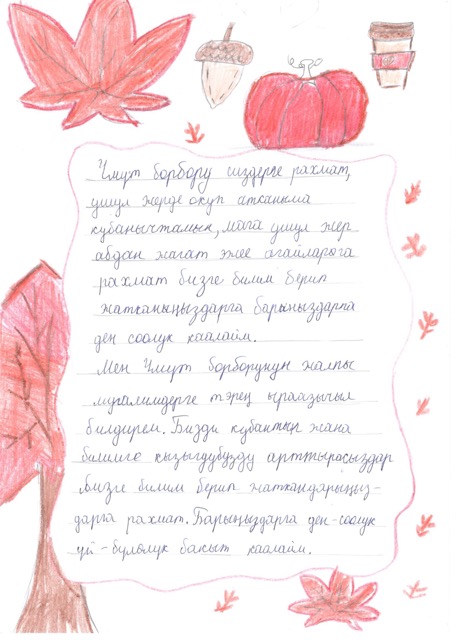 Үмүт борбору сиздерге рахмат,
ушул жерде окуп атканыма
кубанычтамын, мага ушул жер
абдан жагат эже агайларга
рахмат бизге билим берип
жатканыңыздарга барыңыздарга
ден соолук каалайм.
Мен Үмүт борборунун жалпы
мугалимдерге терең ыраазычыл
билдирем. Бизди кубантып жана
билимге кызыгуубузду арттырасыздар
Бизге билим берип жаткандарыңыз-
дарга рахмат. Барыңыздарга ден-соолук
үй-бүлөлүк бакыт каалайм.